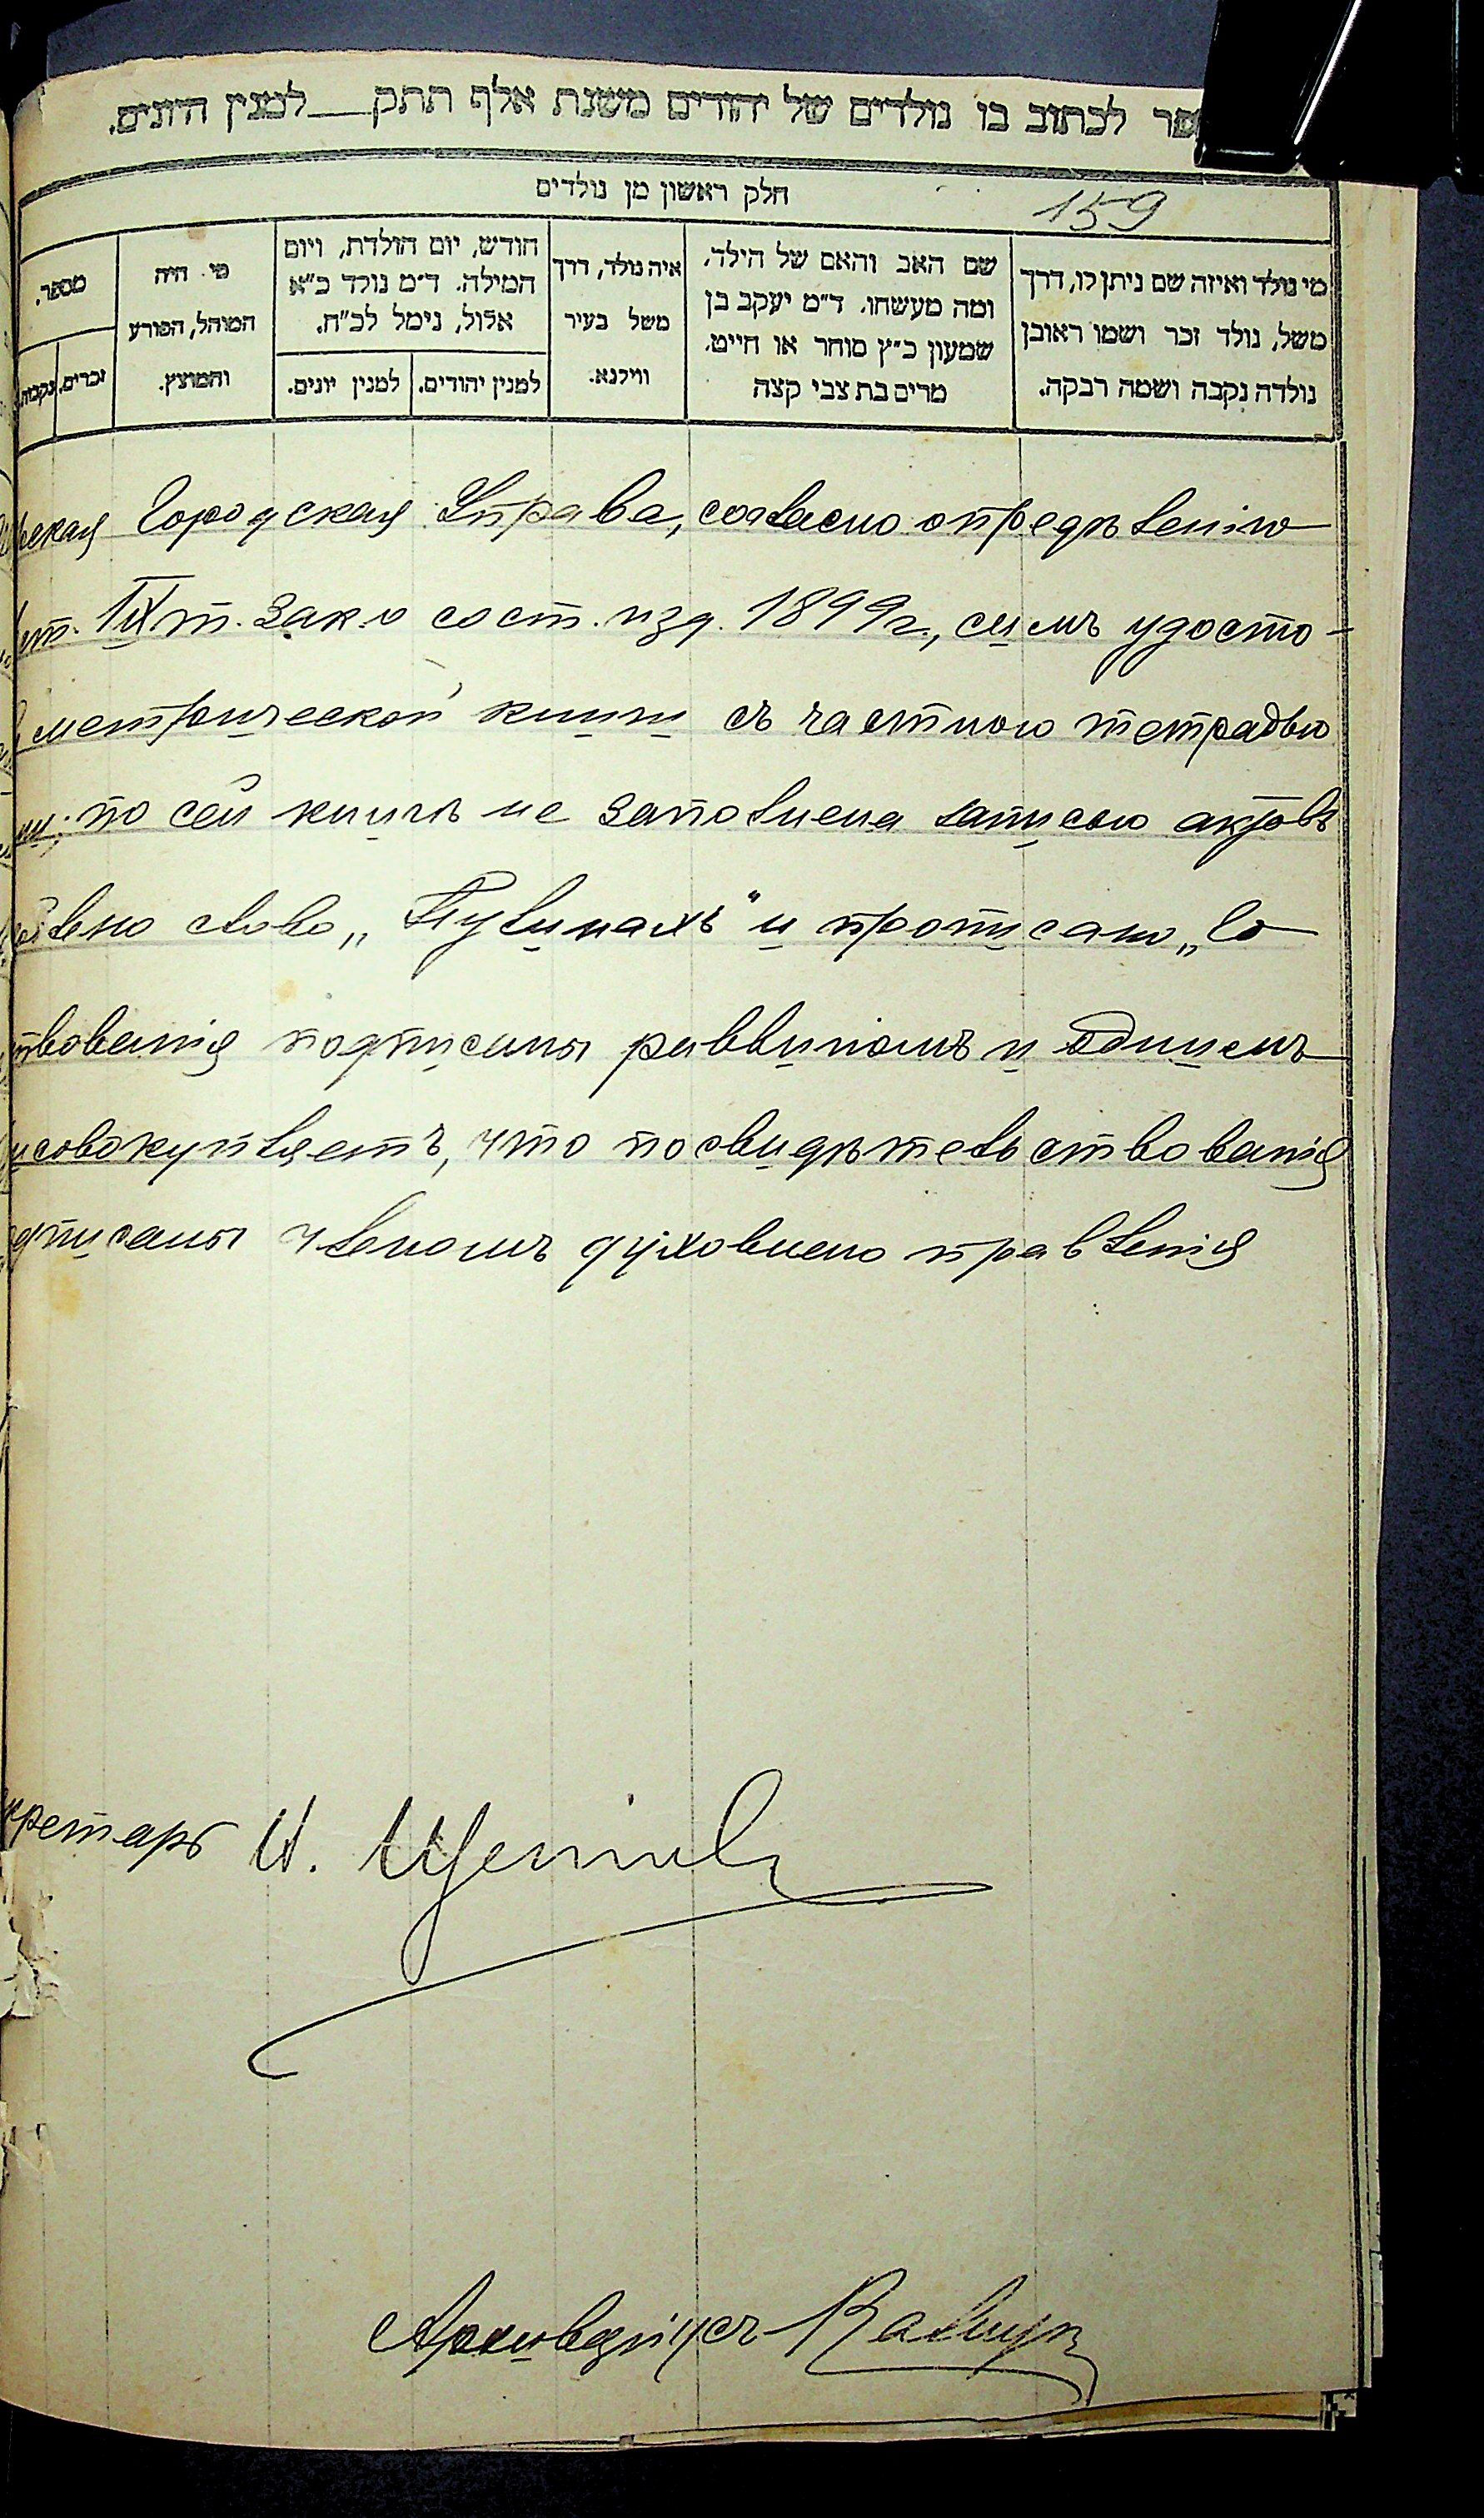 ספר לכתוב בו נולדים של יהודים משנת אלף תתק___למנין היונים.
חלק ראשון מן נולדים
159
מי נולד ואיזה שם ניתן לו, דרך
משל, נולד זכר ושמו ראובן
נולדה נקבה ושמה רבקה.
שם האב והאם של הילד,
ומה מעשהו. ד״מ יעקב בן
שמעון כ״ץ סוחר או חייט.
מרים בת צבי קצה
איה נולד, דרך
משל בעיר
ווילנא.
חודש, יום הולדת, ויום
המילה. ד״מ נולד כ״א
אלול, נימל לכ״ח.
למנין יהודים.
למנין יונים.
מי היה
המוהל, הפורע
והמוצץ.
מספר.
זכרים.
נקבות.
ская Городская Управа, согласно опредѣленію
ст. IX т. Зак. о сост. изд. 1899 г., симъ удосто-
метрической книги съ частною тетрадью
по сей книгѣ не заполнена записью актовъ
слово „ и прописано „
твованія подписаны раввиномъ и однимъ
исовокупляетъ, что по свидѣтельствованія
дписаны членомъ духовнаго правленія
кретарь И.
Архиваріусъ